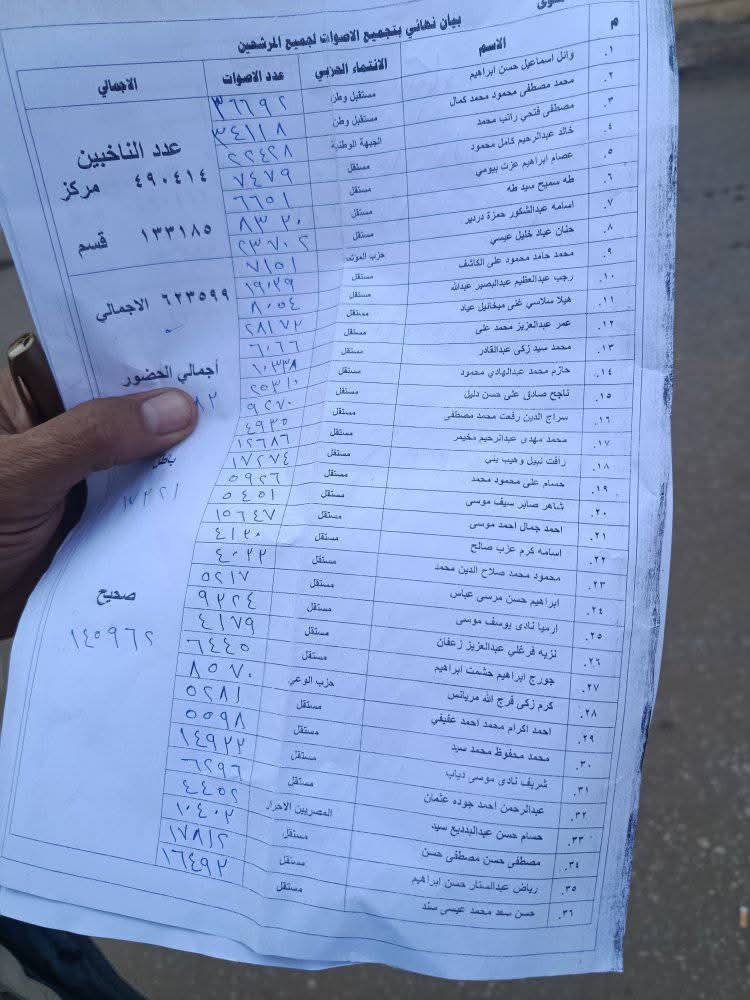 بيان نهائي بتجميع الاصوات لجميع المرشحين
م الاسم الانتماء الحزبي عدد الاصوات الاجمالي
.١ وائل اسماعيل حسن ابراهيم مستقبل وطن ٣٦٦٩٢
.٢ محمد مصطفى محمود محمد كمال مستقبل وطن ٣٤١١٨
.٣ مصطفى فتحي راتب محمد الجبهة الوطنية ٢٢٤٢٨
.٤ خالد عبدالرحيم كامل محمود مستقل ٧٤٧٩
.٥ عصام ابراهيم عزت بيومي مستقل ٦٦٥١
.٦ طه سميح سيد طه مستقل ٨٣٢٠
.٧ اسامه عبدالشكور حمزة دردير مستقل ٢٣٧٠٢
.٨ حنان عياد خليل عيسي حزب الموتمر ٧١٥١
.٩ محمد حامد محمود على الكاشف مستقل ١٩٠٢٩
.١٠ رجب عبدالعظيم عبدالبصير عبدالله مستقل ٨٠٥٤
.١١ هيلا سلاسي غنى ميخائيل عياد مستقل ٢٨١٧٢
.١٢ عمر عبدالعزيز محمد على مستقل ٦٠٦٦
.١٣ محمد سيد زكى عبدالقادر مستقل ١٠٣٣٨
.١٤ حازم محمد عبدالهادي محمود مستقل ٢٥٣١٠
.١٥ ناجح صادق على حسن دليل مستقل ٩٢٧٠
.١٦ سراج الدين رفعت محمد مصطفى مستقل ٤٩٣٥
.١٧ محمد مهدى عبدالرحيم مخيمر مستقل ١٢٦٨٦
.١٨ رافت نبيل وهيب بني مستقل ١٧٢٧٤
.١٩ حسام على محمود محمد مستقل ٥٩٢٦
.٢٠ شاهر صابر سيف موسى مستقل ٥٤٥١
.٢١ احمد جمال احمد موسى مستقل ١٥٦٤٧
.٢٢ اسامه كرم عزب صالح مستقل ٤١٢٠
.٢٣ محمود محمد صلاح الدين محمد مستقل ٤٠٢٢
.٢٤ ابراهيم حسن مرسى عباس مستقل ٥٢١٧
.٢٥ ارميا نادى يوسف موسى مستقل ٩٢٢٤
.٢٦ نزيه فرغلي عبدالعزيز زعفان مستقل ٤١٧٩
.٢٧ جورج ابراهيم حشمت ابراهيم مستقل ٦٤٤٥
.٢٨ كرم زكى فرج الله مرياس حزب الوعي ٨٥٧٠
.٢٩ احمد اكرام محمد احمد عفيفي مستقل ٥٢٨١
.٣٠ محمد محفوظ محمد سيد مستقل ٥٥٩٨
.٣١ شريف نادى موسى دياب مستقل ١٤٩٢٢
.٣٢ عبدالرحمن احمد جوده عثمان مستقل ٦٢٩٦
.٣٣ حسام حسن عبدالبديع سيد المصريين الاحرار ٤٤٥٢
.٣٤ مصطفى حسن مصطفى حسن مستقل ١٠٤٠٢
.٣٥ رياض عبدالستار حسن ابراهيم مستقل ١٧٨١٢
.٣٦ حسن سعد محمد عيسى سند مستقل ١٦٤٩٢
عدد الناخبين
٤٩٠٤١٤ مركز
١٣٣١٨٥ قسم
٦٢٣٥٩٩ الاجمالي
أجمالي الحضور
باطل
صحيح
١٤٥٩٦٢